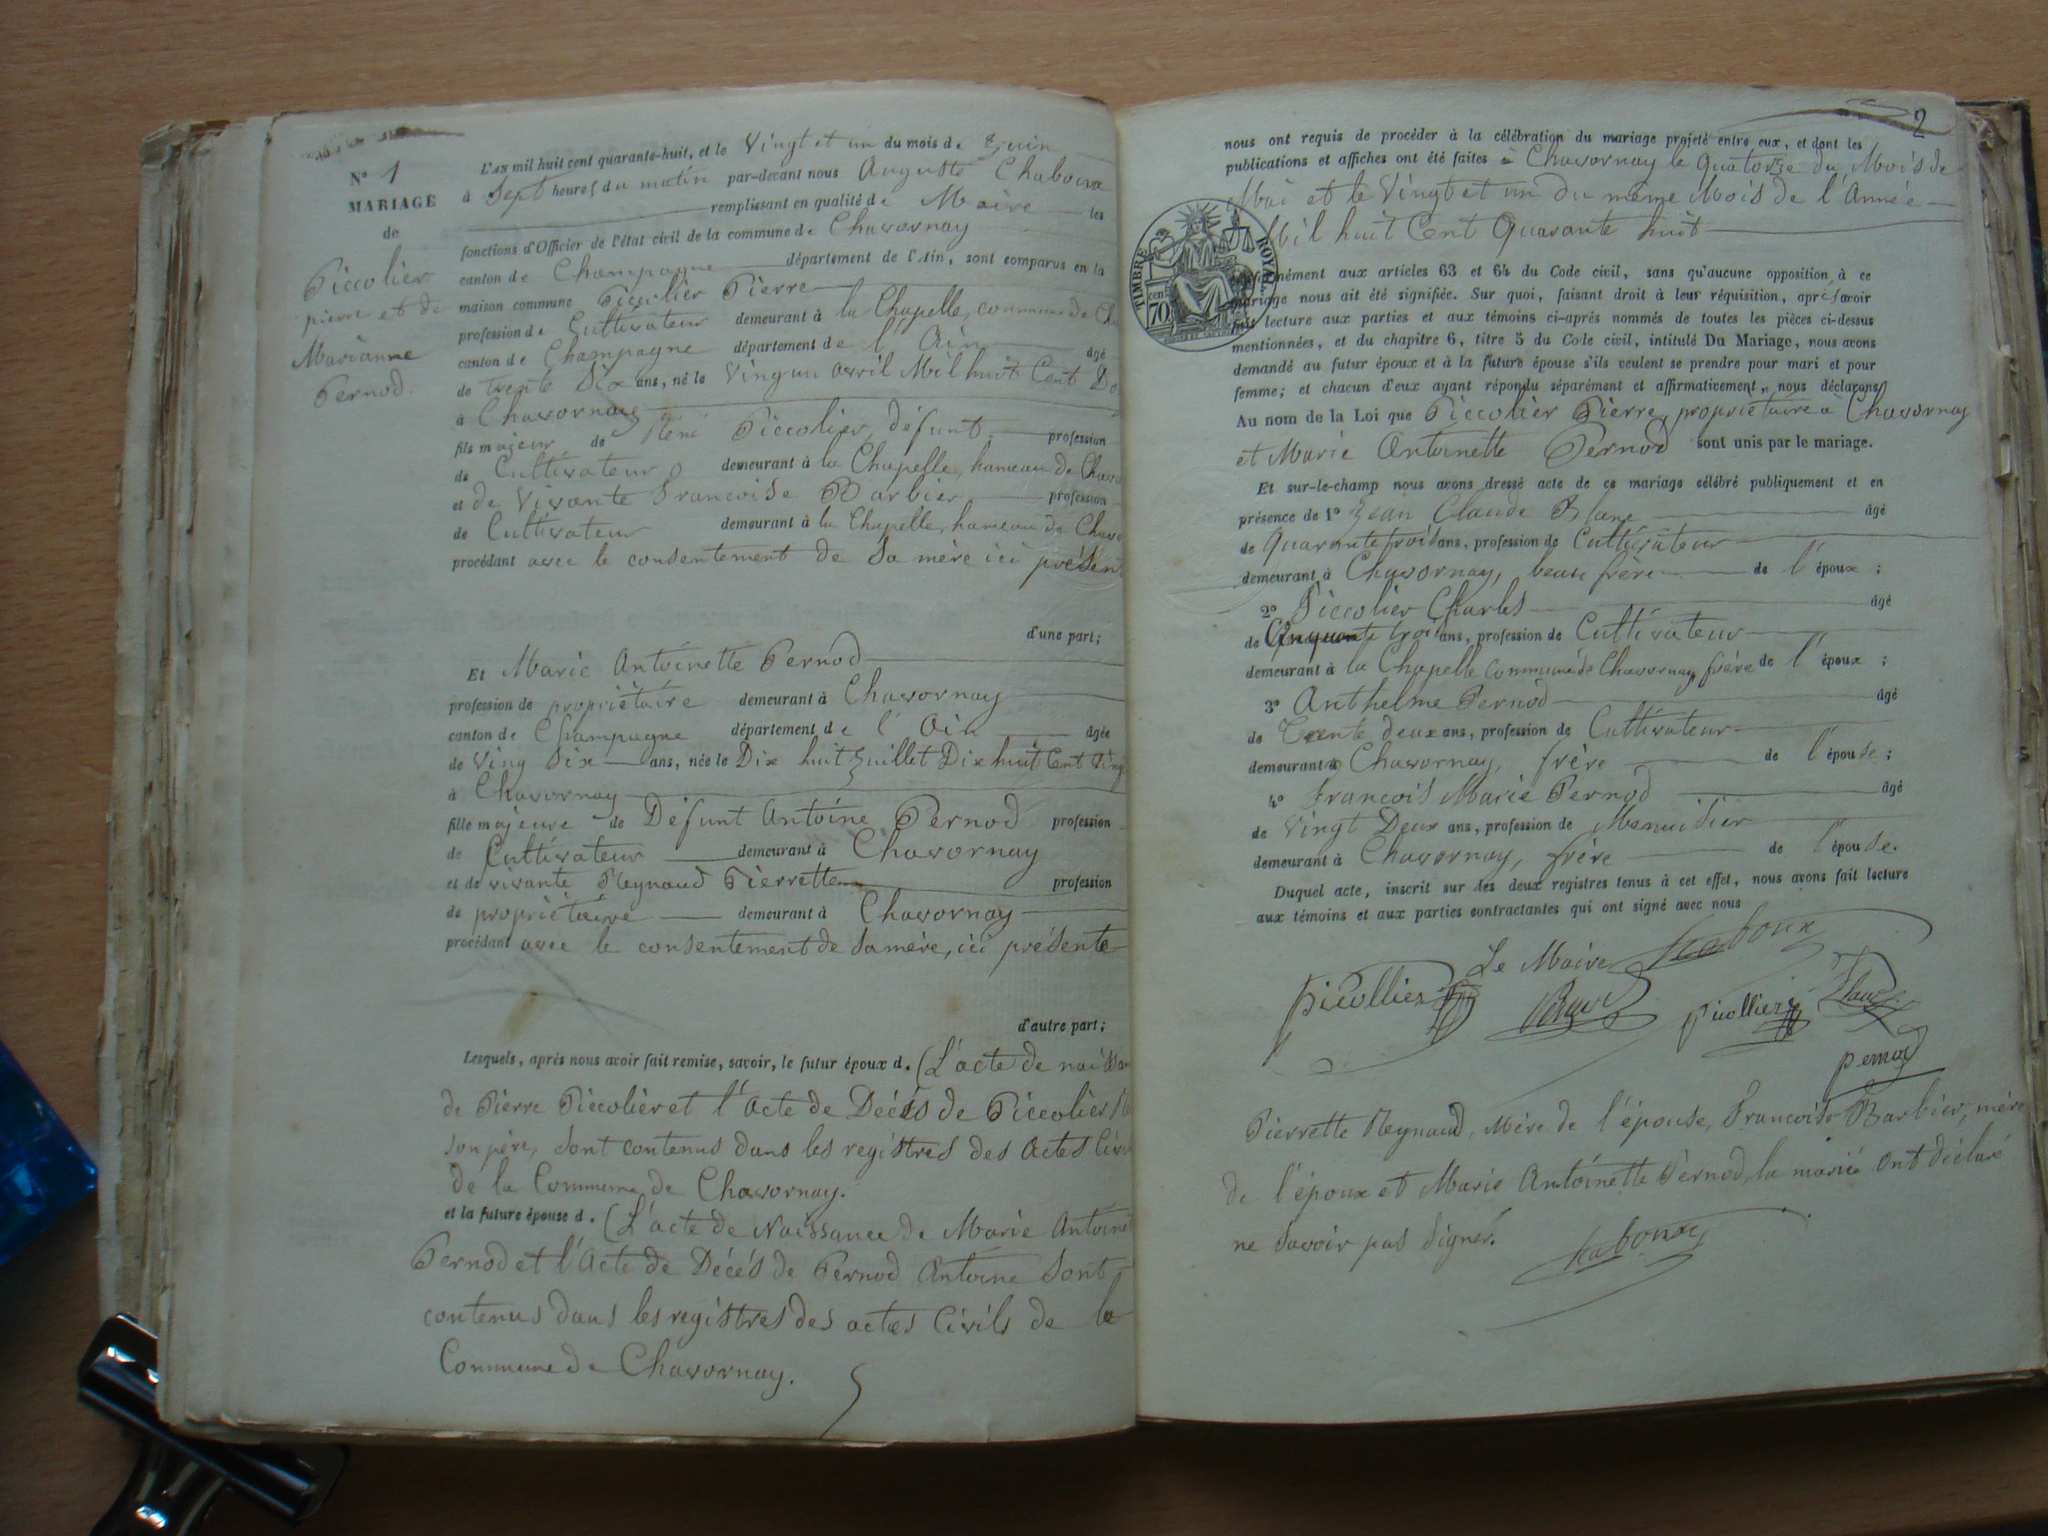 N° 1
MARIAGE
de
Piccolier
pierre et de
Marianne
Pernod.
L'AN mil huit cent quarante-huit, et le Vingt et un du mois de Juin
à Sept heures du matin par-devant nous Auguste Chaboux
remplissant en qualité de Maire les
fonctions d'Officier de l'état civil de la commune de Chavornay
canton de Champagne département de l'Ain, sont comparus en la
maison commune Piccolier Pierre
profession de Cultivateur demeurant à la Chapelle, commune de Cha
canton de Champagne département de l'Ain âgé
de trente Six ans, né le Vingun avril Mil huit Cent Do
à Chavornay
fils majeur de René Piccolier, défunt profession
de Cultivateur demeurant à la Chapelle, hameau de Chavo
et de Vivante Francoise Barbier profession
de Cultivateur demeurant à la Chapelle, hameau de Chavo
procédant avec le consentement de Sa mère ici présen
d'une part;
Et Marie Antoinette Pernod
profession de propriétaire demeurant à Chavornay
canton de Champagne département de l'Ain âgée
de Ving Six ans, née le Dix huit Juillet Dix huit Cent Ving
à Chavornay
fille majeure de Défunt Antoine Pernod profession
de Cultivateur demeurant à Chavornay
et de vivante Reynaud Pierrette profession
de propriétaire demeurant à Chavornay
procédant avec le consentement de Sa mère, ici présente
d'autre part;
Lesquels, après nous avoir fait remise, savoir, le futur époux d. (L'acte de naissan
de Pierre Piccolier et l'acte de Décès de Piccolier
son père, sont contenus dans les registres des Actes Civi
de la Commune de Chavornay.
et la future épouse d. (L'acte de Naissance de Marie Antoine
Pernod et l'Acte de Décès de Pernod Antoine Sont
contenus dans les registres des actes Civils de la
Commune de Chavornay.
2
nous ont requis de procéder à la célébration du mariage projeté entre eux, et dont les
publications et affiches ont été faites à Chavornay le Quatorze du Mois de
Mai et le Vingt et un du même Mois de l'Année
Mil huit Cent Quarante huit
TIMBRE ROYAL
70 cent
conformément aux articles 63 et 64 du Code civil, sans qu'aucune opposition à ce
mariage nous ait été signifiée. Sur quoi, faisant droit à leur réquisition, après avoir
fait lecture aux parties et aux témoins ci-après nommés de toutes les pièces ci-dessus
mentionnées, et du chapitre 6, titre 5 du Code civil, intitulé Du Mariage, nous avons
demandé au futur époux et à la future épouse s'ils veulent se prendre pour mari et pour
femme; et chacun d'eux ayant répondu séparément et affirmativement, nous déclarons
Au nom de la Loi que Piccolier Pierre, propriétaire à Chavornay
et Marie Antoinette Pernod sont unis par le mariage.
Et sur-le-champ nous avons dressé acte de ce mariage célébré publiquement et en
présence de 1° Jean Claude Blanc âgé
de Quarante trois ans, profession de Cultivateur
demeurant à Chavornay, beau frère de l'époux;
2° Piccolier Charles âgé
de Cinquante trois ans, profession de Cultivateur
demeurant à la Chapelle Commune de Chavornay, frère de l'époux;
3° Anthelme Pernod âgé
de Trente deux ans, profession de Cultivateur
demeurant à Chavornay, frère de l'épouse;
4° Francois Marie Pernod âgé
de Vingt Deux ans, profession de Menuisier
demeurant à Chavornay, frère de l'épouse.
Duquel acte, inscrit sur les deux registres tenus à cet effet, nous avons fait lecture
aux témoins et aux parties contractantes qui ont signé avec nous
Le Maire Chaboux
picollier picollier
pernod
Pierrette Reynaud, Mère de l'épouse, Francoise Barbier, mère
de l'époux et Marie Antoinette Pernod, la mariée ont déclaré
ne Savoir pas Signer.
Chaboux